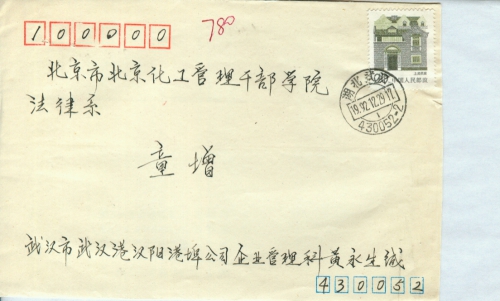 100000
780
北京市北京化工管理干部学院
法律系
童增
中国人民邮政
湖北武汉
1992.12.29.17
430052-2
武汉市武汉港汉阳港埠公司企业管理科黄永生缄
430052